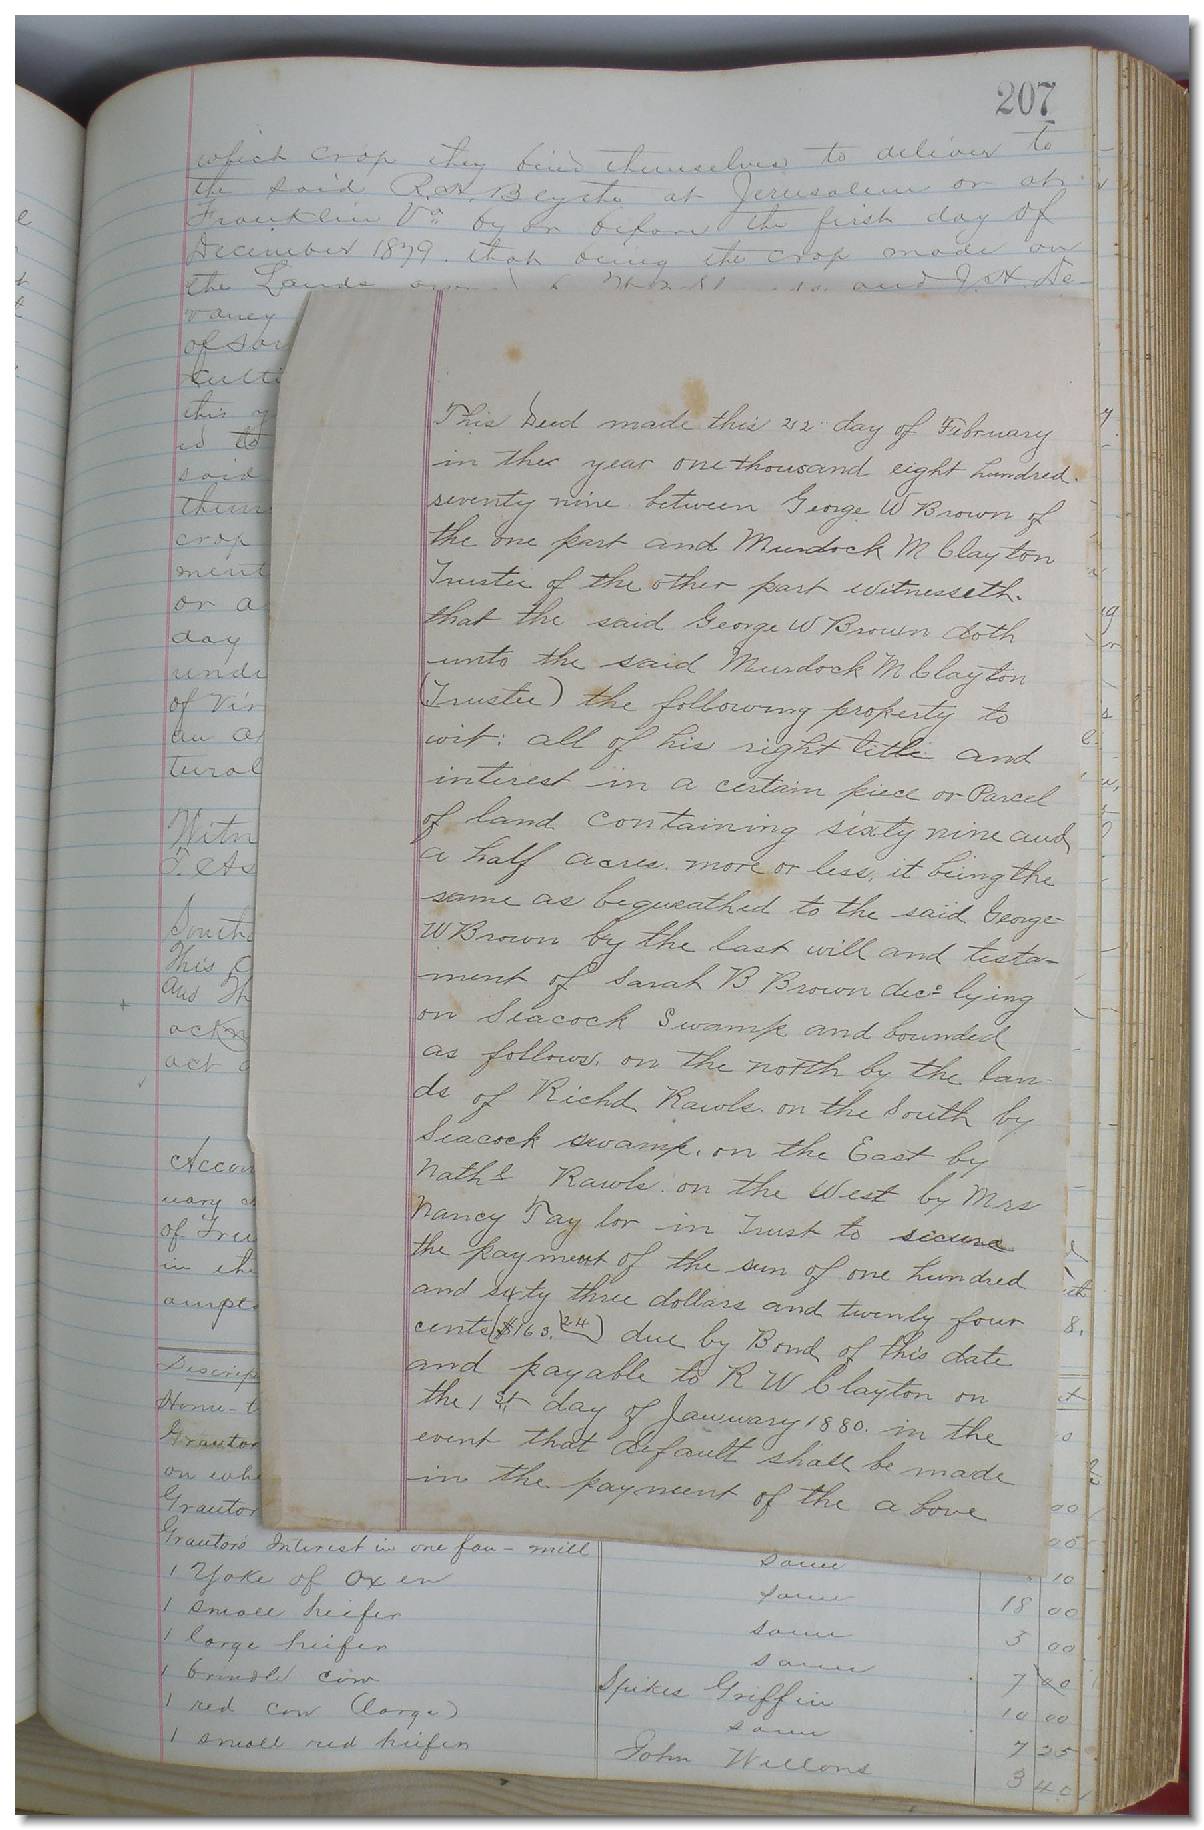 207
which crop they bind themselves to deliver to
the said R. H. Blythe at Jerusalem or at
Franklin Va by or before the first day of
December 1879. that being the crop made on
the Lands and J. H. De-
vaney
of
this
is to
said
them
crop
ment
or a
day
unde
of Vir
an a
tural
Witn
South
This
and Th
ackn
act
Accou
uary
of Tru
in the
ample
Descrip
Home-
Grantor
on whe
Grantor
This Deed made this 22 day of February
in ther year one thousand eight hundred
seventy nine between George W Brown of
the one part and Murdock M Clayton
Trustee of the other part witnesseth.
that the said George W Brown doth
unto the said Murdock M Clayton
(Trustee) the following property to
wit: all of his right title and
interest in a certain piece or Parcel
of land containing sixty nine and
a half acres. more or less. it being the
same as bequeathed to the said George
W Brown by the last will and testa-
ment of Sarah B Brown decd lying
on Seacock Swamp and bounded
as follows. on the north by the lan
ds of Richd Rawls. on the South by
Seacock swamp. on the East by
Nathl Rawls. on the West by Mrs
Nancy Tay lor in Trust to secure
the payment of the sum of one hundred
and sixty three dollars and twenty four
cents ($163.24) due by Bond of this date
and payable to R W Clayton on
the 1st day of Jauwary 1880. in the
event that default shall be made
in the payment of the a bove
Grantors Interest in one fan-mill same 10
1 Yoke of Oxen same 18 00
1 small heifer same 3 00
1 large heifer same 7 00
1 brindle cow Spikes Griffin 10 00
1 red cow (large) same 7 25
1 small red heifer John Willons 3 40